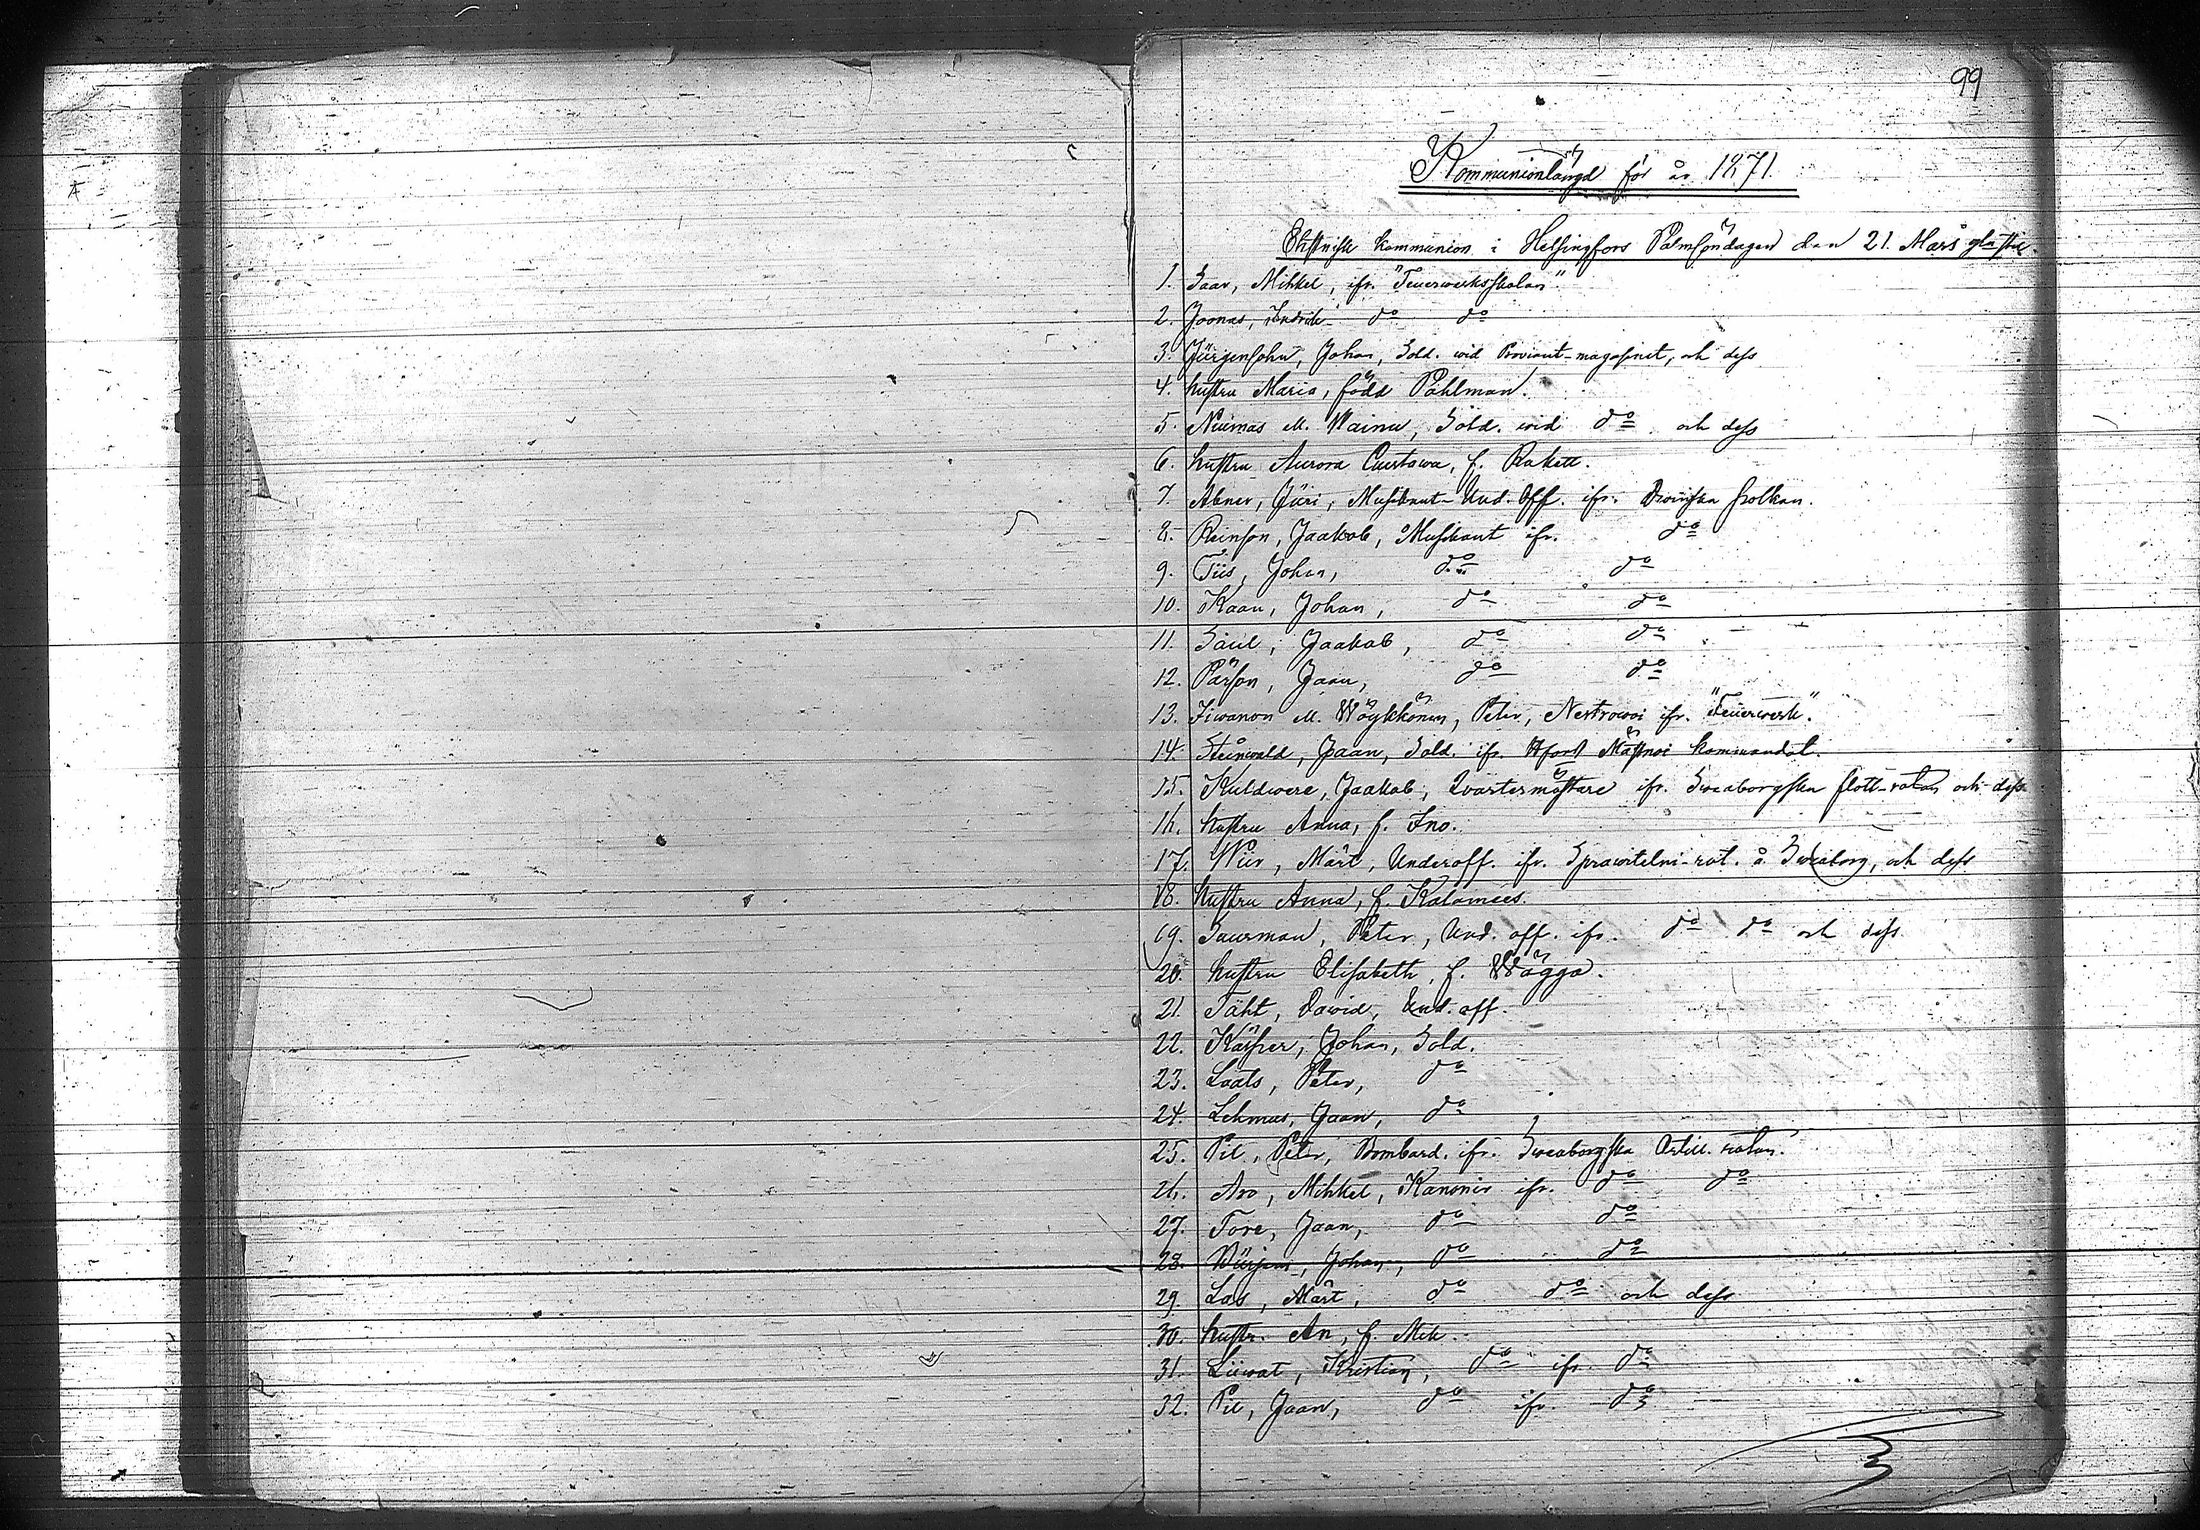 99
Kommunionlängd för år 1871.
Ehstnisk kommunion i Helsingfors Palmsöndagen den 21. Mars gla stil.
1. Saar, Mihkel, ifr. "Feuerwerksskolan".
2. Joonas, Indrik do do
3. Jürgensohn, Johan, Sold. wid Proviant-magasinet, och dess
4. hustru Maria, född Pahlman.
5. M. Wainu, Sold. wid do och dess
6. hustru Aurora Gustawa, f. Rakett.
7. Abner, Jüri, Musikant-Und. Off. ifr. Dwinska polken.
8. Reinson, Jaakob, Musikant ifr. do
9. Tiis, Johan, do do
10. Kaan, Johan, do do
11. Saul, Jaakob, do do
12. Pärson, Jaan, do do
13. M. Wöykkönen, Peter, Nestrowoi ifr. "Feuerwerk".
14. Steinwald, Jaan, Sold. ifr. Hfors Mästnoi kommandot.
15. Kuldwere, Jaakob, Qvartermästare ifr. Sweaborgska flott-rotan och dess
16. hustru Anna, f. Ino.
17. Wiir, Märt, Underoff. ifr. Sprawitelni-rot. å Sweaborg, och dess
18. hustru Anna, f. Kalamees.
19. Suurman, Peter, Und. off. ifr. do do och dess
20. hustru Elisabeth, f. Wägga.
21. Täht, Dawid, Und. off.
22. Käsper, Johan, Sold.
23. Laats, Peter, do
24. Lehmus, Jaan, do
25. Pil, Peter, Bombard. ifr. Sweaborgska Artill. rotan.
26. Aro, Mihkel, Kanonir ifr. do do
27. Tore, Jaan, do do
28. Johan, do do
29. Las, Märt, do do och dess
30. hustr. An, f. Mik.
31. Liiwat, Kristian, do ifr. do
32. Pil, Jaan, do ifr. do